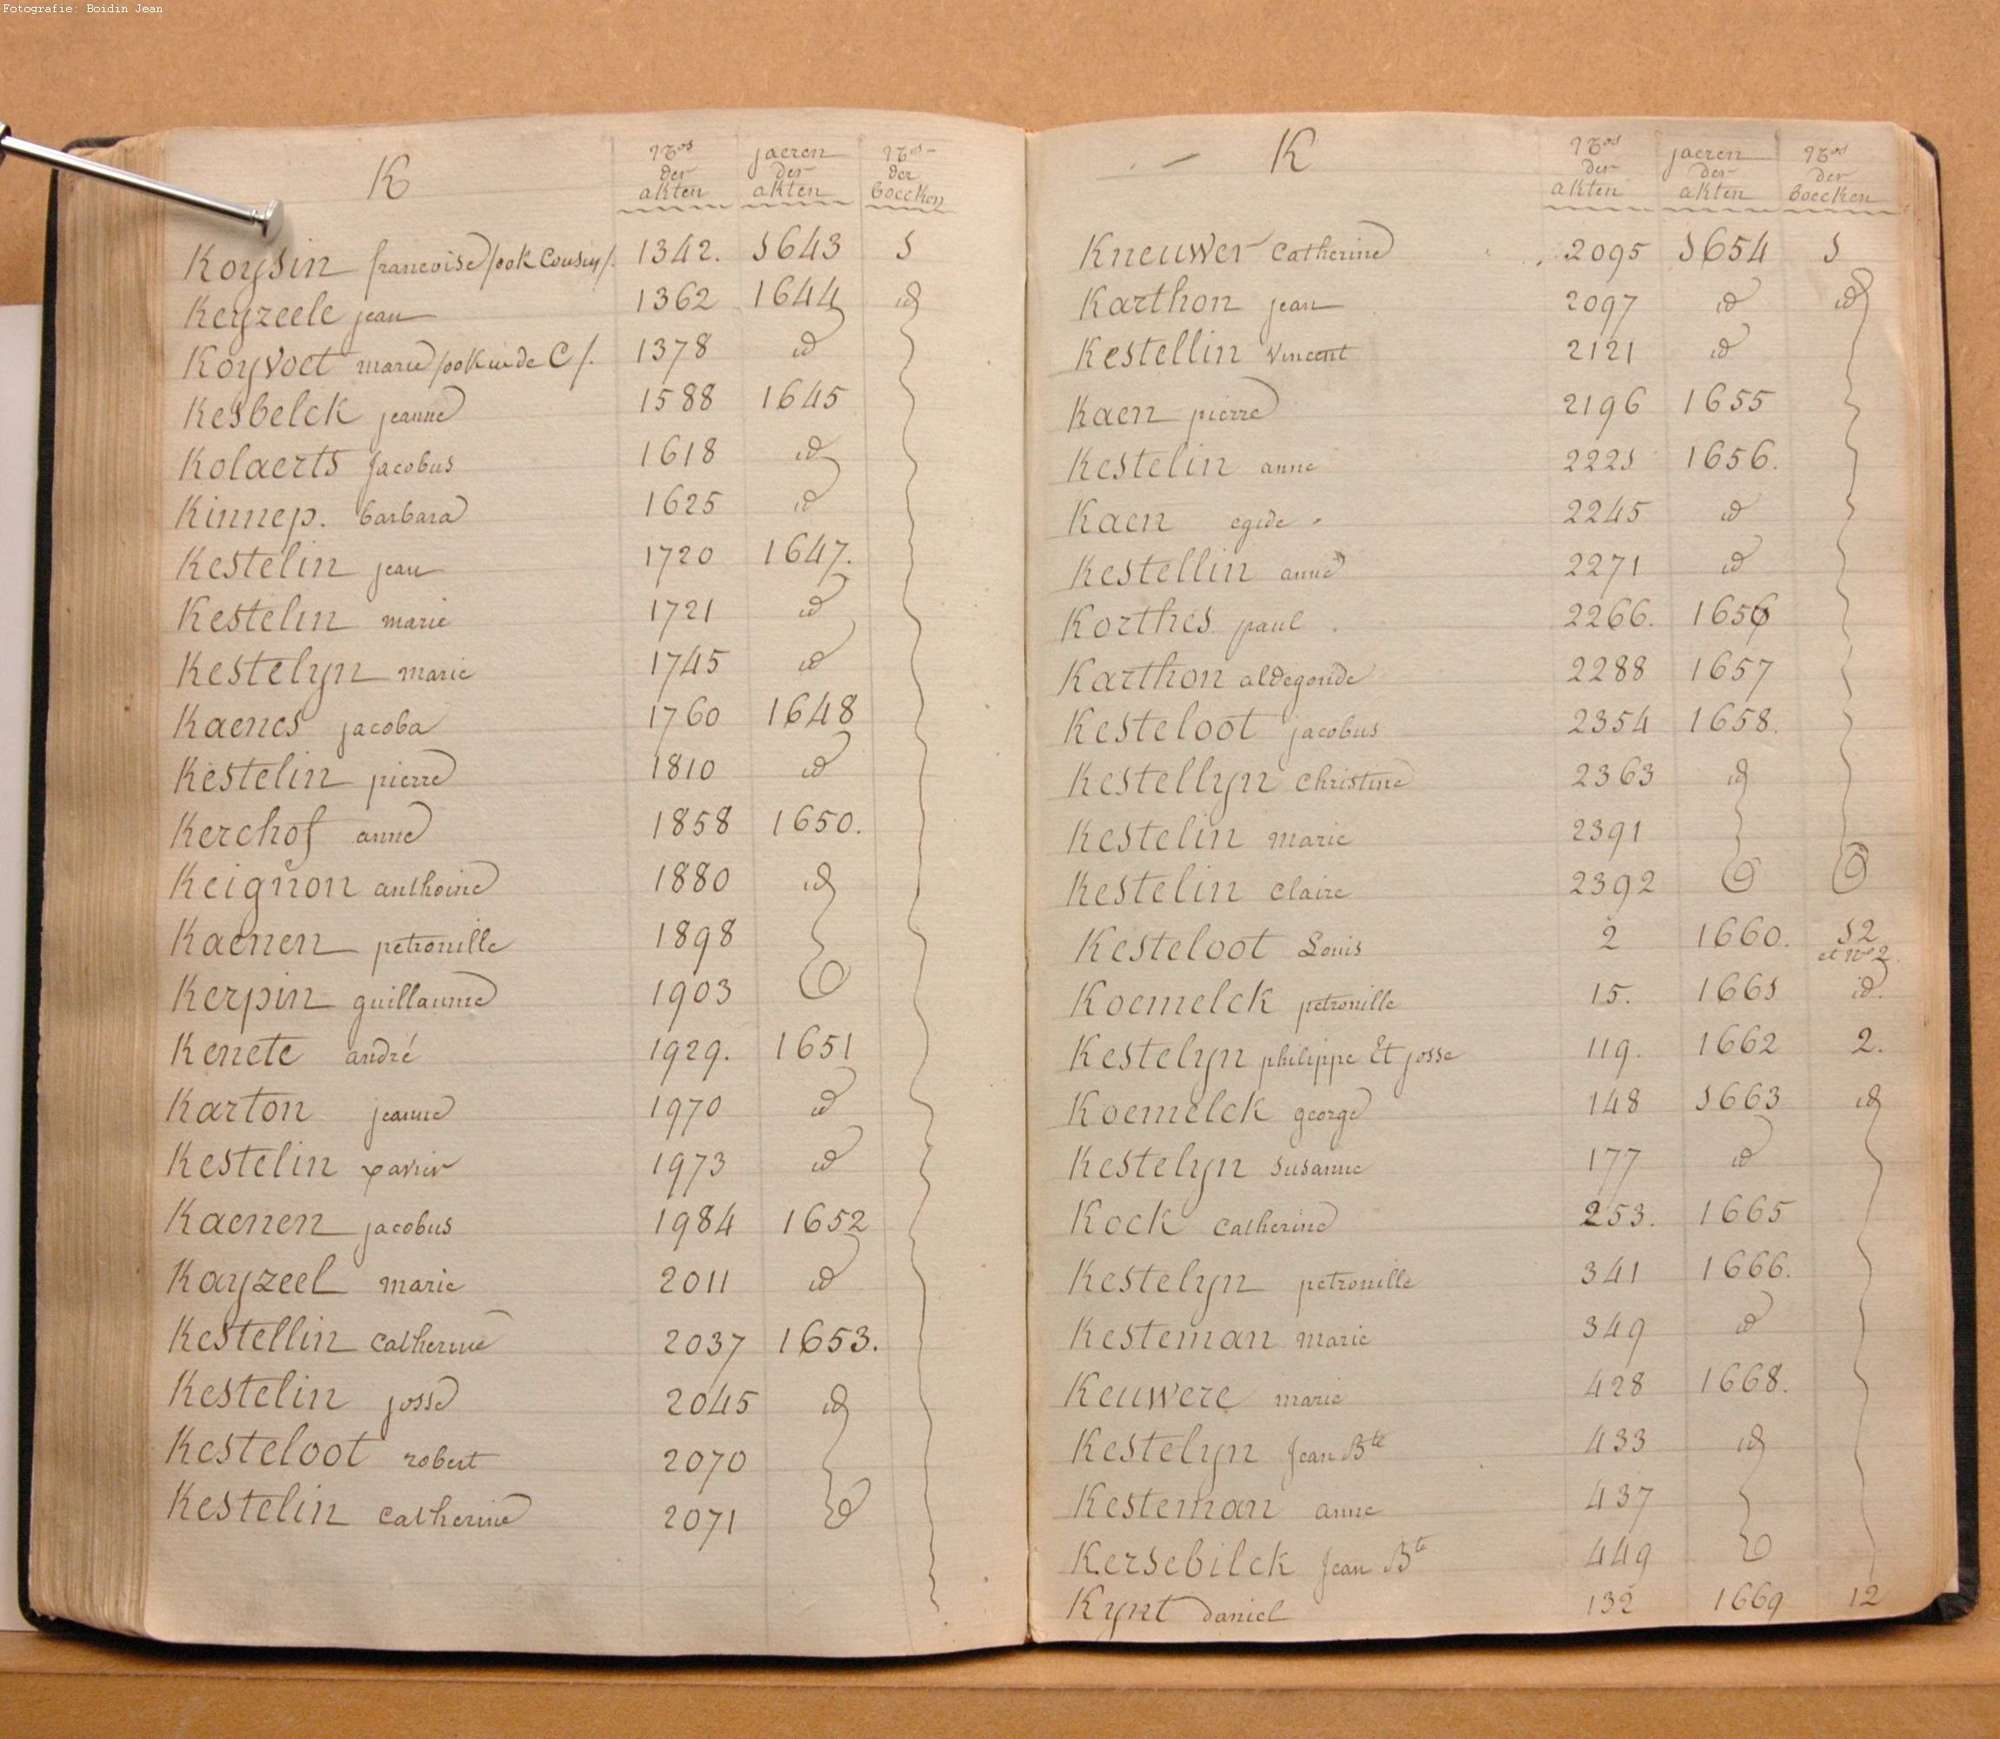 Fotografie: Boidin Jean
K Nos der akten jaeren der akten Nos der boecken
Koysin francoise /ook Cousin/. 1342. 1643 1
Keyzeele jean 1362 1644 id
Koyvoet marie /ook in de C/. 1378 id
Kesbelck jeanne 1588 1645
Kolaerts Jacobus 1618 id
Kinnep. barbara 1625 id
Kestelin jean 1720 1647.
Kestelin marie 1721 id
Kestelyn marie 1745 id
Kaenes jacoba 1760 1648
Kestelin pierre 1810 id
Kerchof anne 1858 1650.
Keignon anthoine 1880 id
Kaenen petronille 1898
Kerpin guillaume 1903
Kenete andré 1929. 1651
Karton jeanne 1970 id
Kestelin xavier 1973 id
Kaenen jacobus 1984 1652
Kayzeel marie 2011 id
Kestellin Catherine 2037 1653.
Kestelin josse 2045 id
Kesteloot robert 2070
Kestelin Catherine 2071
K Nos der akten jaeren der akten Nos der boecken
Kneuwer Catherine 2095 1654 1
Karthon jean 2097 id id
Kestellin Vincent 2121 id
Kaen pierre 2196 1655
Kestelin anne 2221 1656.
Kaen egide 2245 id
Kestellin anne 2271 id
Korthes paul 2266. 1656
Karthon aldegonde 2288 1657
Kesteloot jacobus 2354 1658.
Kestellyn Christine 2363 id
Kestelin marie 2391
Kestelin Claire 2392
Kesteloot Louis 2 1660. 12 et No 2
Koemelck petronille 15. 1661 id.
Kestelyn philippe Et josse 119. 1662 2.
Koemelck george 148 1663 id
Kestelyn susanne 177 id
Kock Catherine 253. 1665
Kestelyn petronille 341 1666.
Kesteman marie 349 id
Keuwere marie 428 1668.
Kestelyn Jean Bte 433 id
Kesteman anne 437
Kersebilck Jean Bte 449
Kynt daniel 132 1669 12